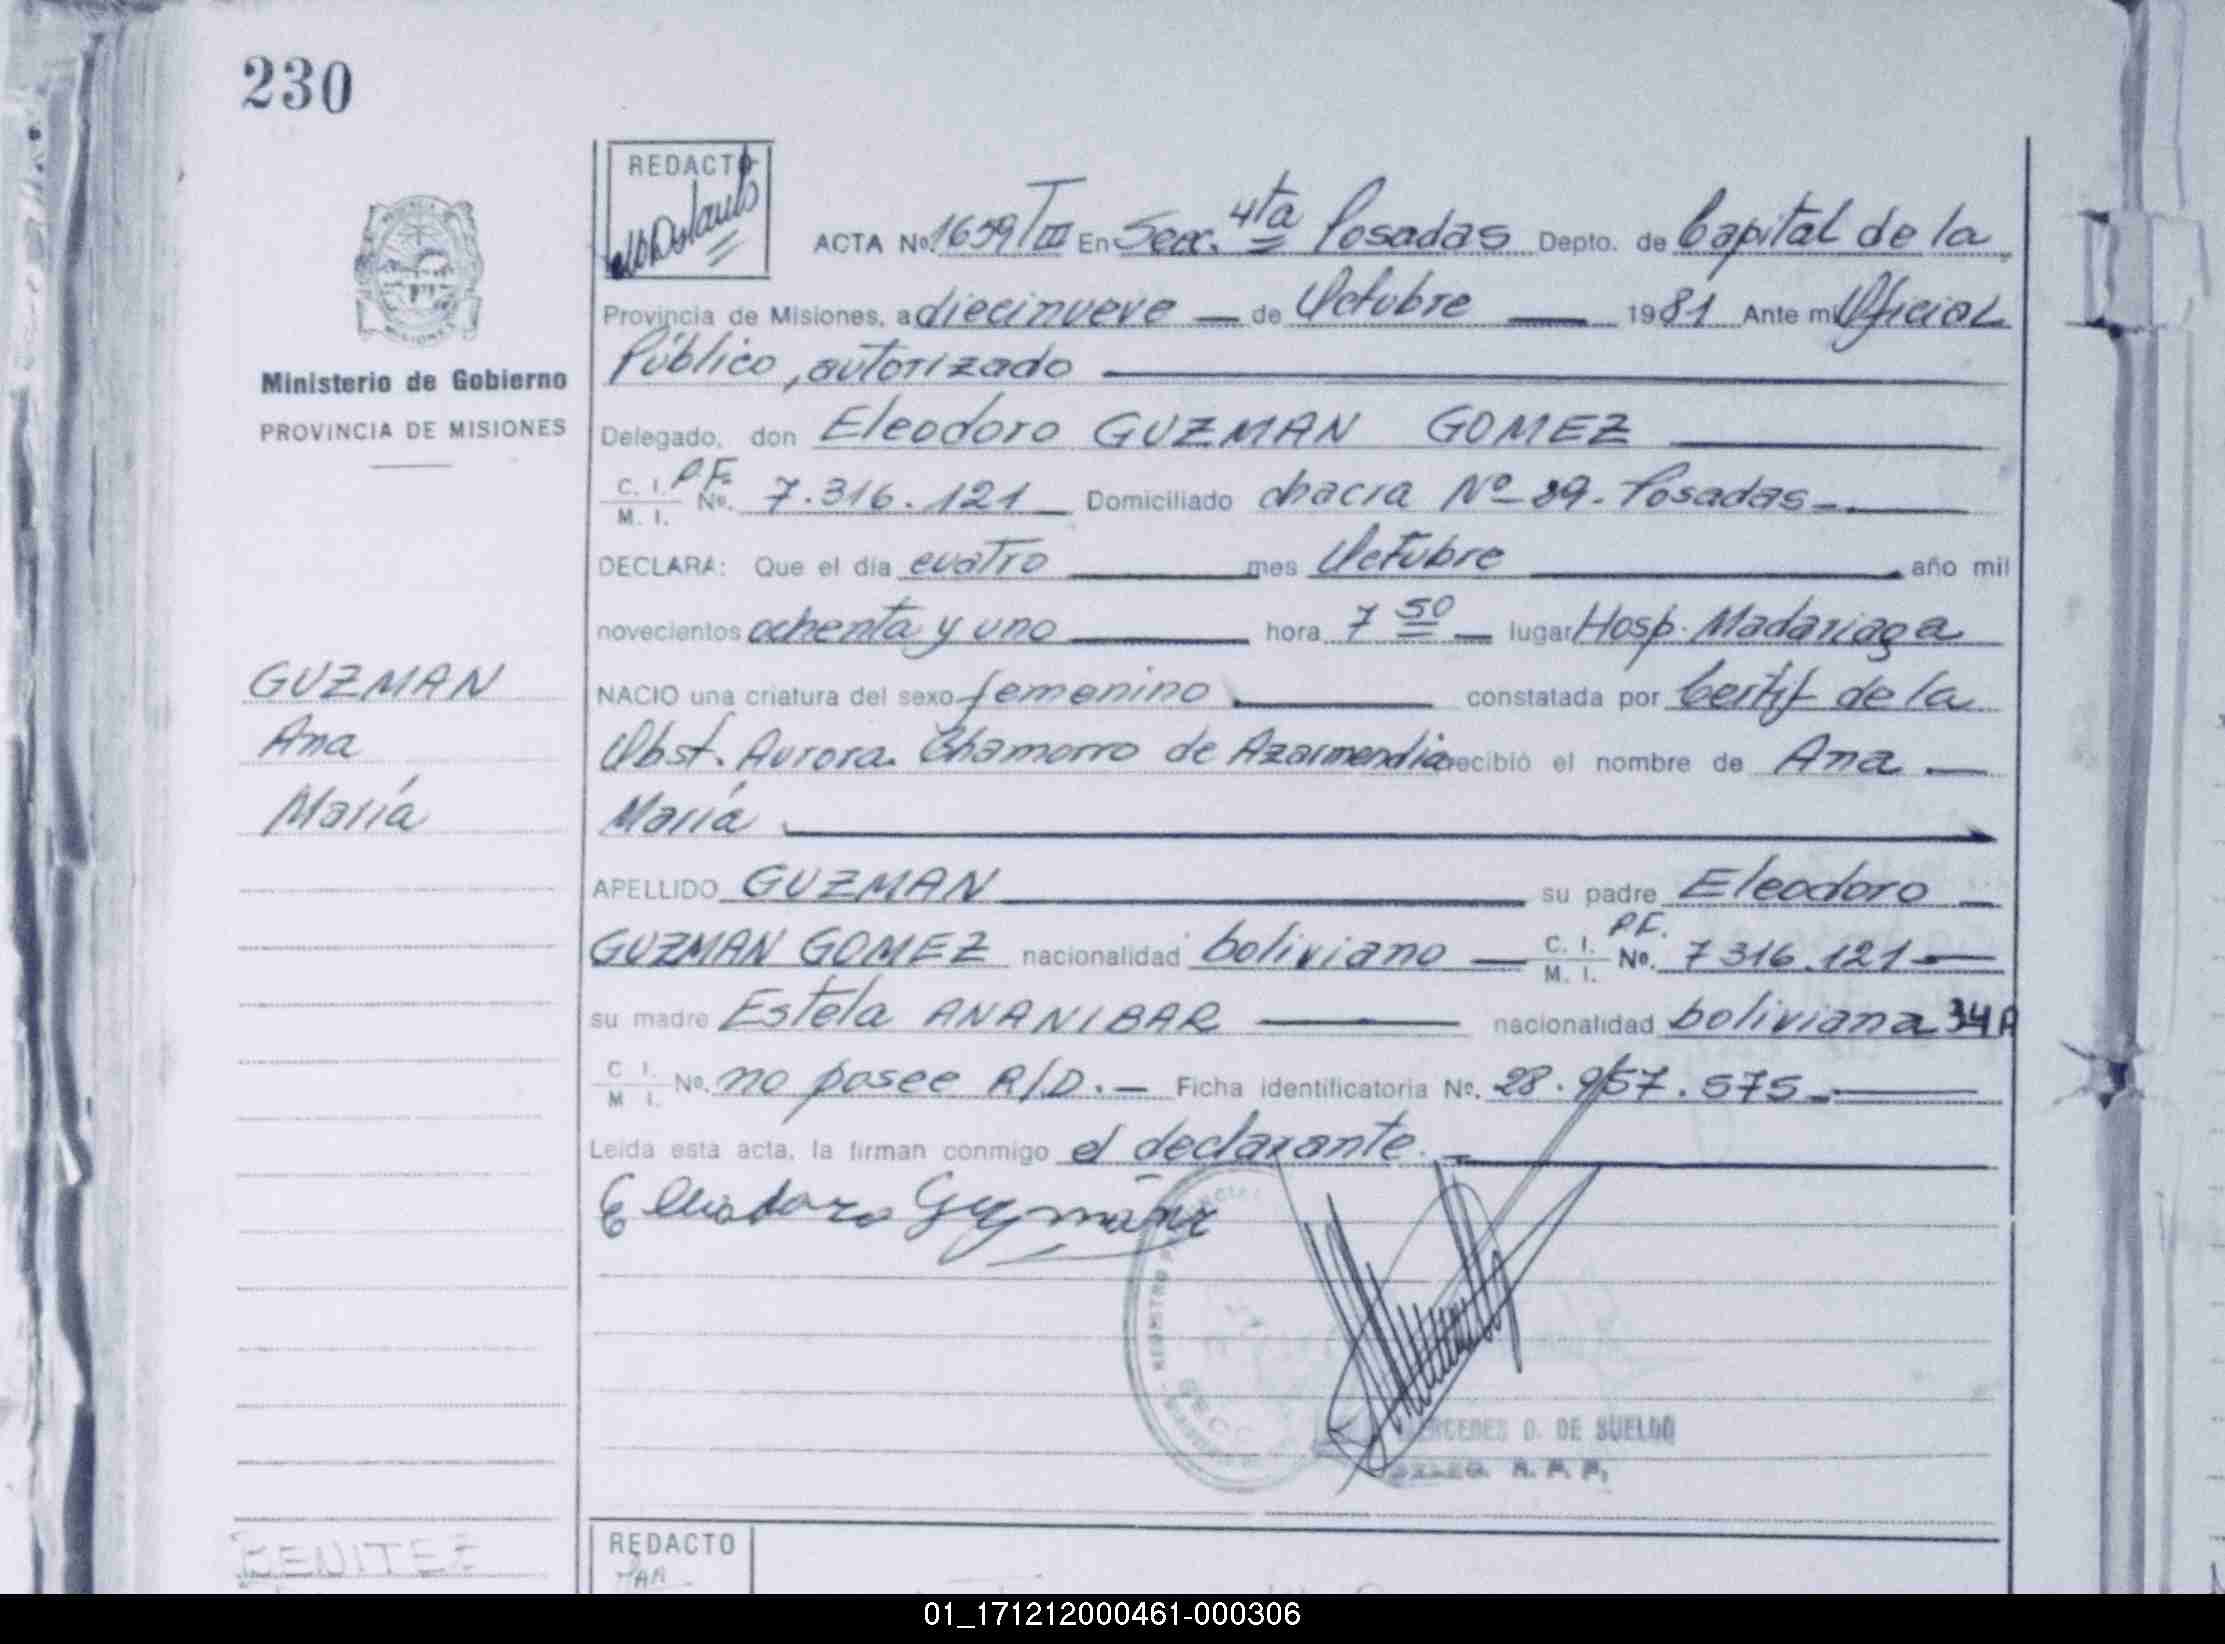 230
REDACTO
ACTA No. 1659 T III En Secc. 4ta Posadas Depto. de Capital de la
Provincia de Misiones, a diecinueve de Octubre 1981 Ante mi Oficial
Público, autorizado
Ministerio de Gobierno
PROVINCIA DE MISIONES
Delegado, don Eleodoro GUZMAN GOMEZ
C. I. P.F.
M. I. No. 7.316.121 Domiciliado chacra Nº 89. Posadas
DECLARA: Que el día cuatro mes Octubre año mil
novecientos ochenta y uno hora 7 50 lugar Hosp. Madariaga
GUZMAN
Ana
María
NACIO una criatura del sexo femenino constatada por Certif de la
Obst. Aurora Chamorro de Azarmendia recibió el nombre de Ana
María
APELLIDO GUZMAN su padre Eleodoro
GUZMAN GOMEZ nacionalidad boliviano C. I. M. I. P.F. No. 7316.121
su madre Estela ANANIBAR nacionalidad boliviana 34 A
C I. M I. No. no posee R/D. Ficha identificatoria No. 28.957.575
Leída esta acta, la firman conmigo el declarante.
Eleodoro Guzmán
REGISTRO
D. DE SUELDO
BENITEZ
REDACTO
01_171212000461-000306